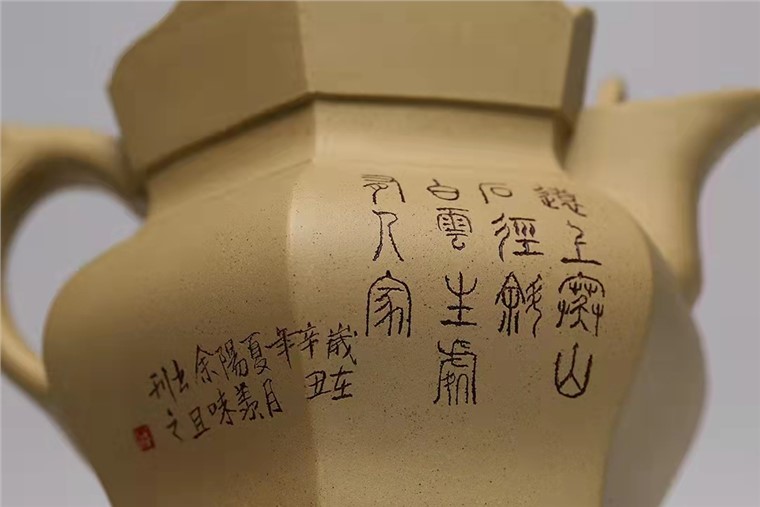 遠上寒山
石徑斜
白雲生處
有人家
歲在
辛丑
年
夏月
陽羨
余味
且
刊之